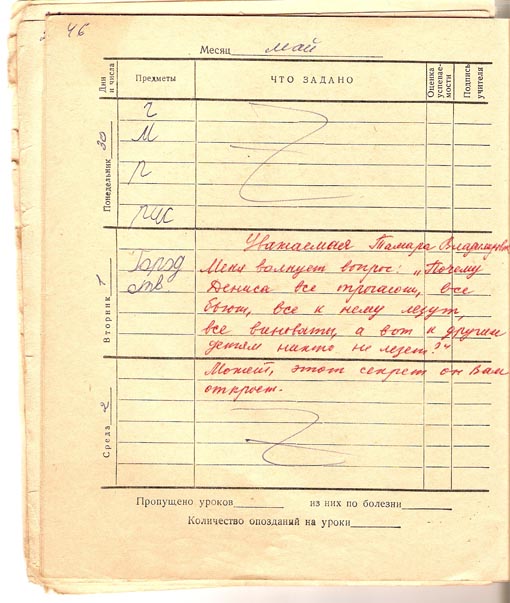 46
Месяц май
Дни и числа
Предметы
ЧТО ЗАДАНО
Оценка успевае- мости
Подпись учителя
Понедельник 30
Ч
М
Р
рис
Вторник 1
ств.
Уважаемая Тамара Владимировна
Меня волнует вопрос: „Почему
Дениса все трогают, все
бьют, все к нему лезут,
все виноваты, а вот к другим
детям никто не лезет?"
Может, этот секрет он Вам
откроет.
Среда 2
Пропущено уроков из них по болезни
Количество опозданий на уроки